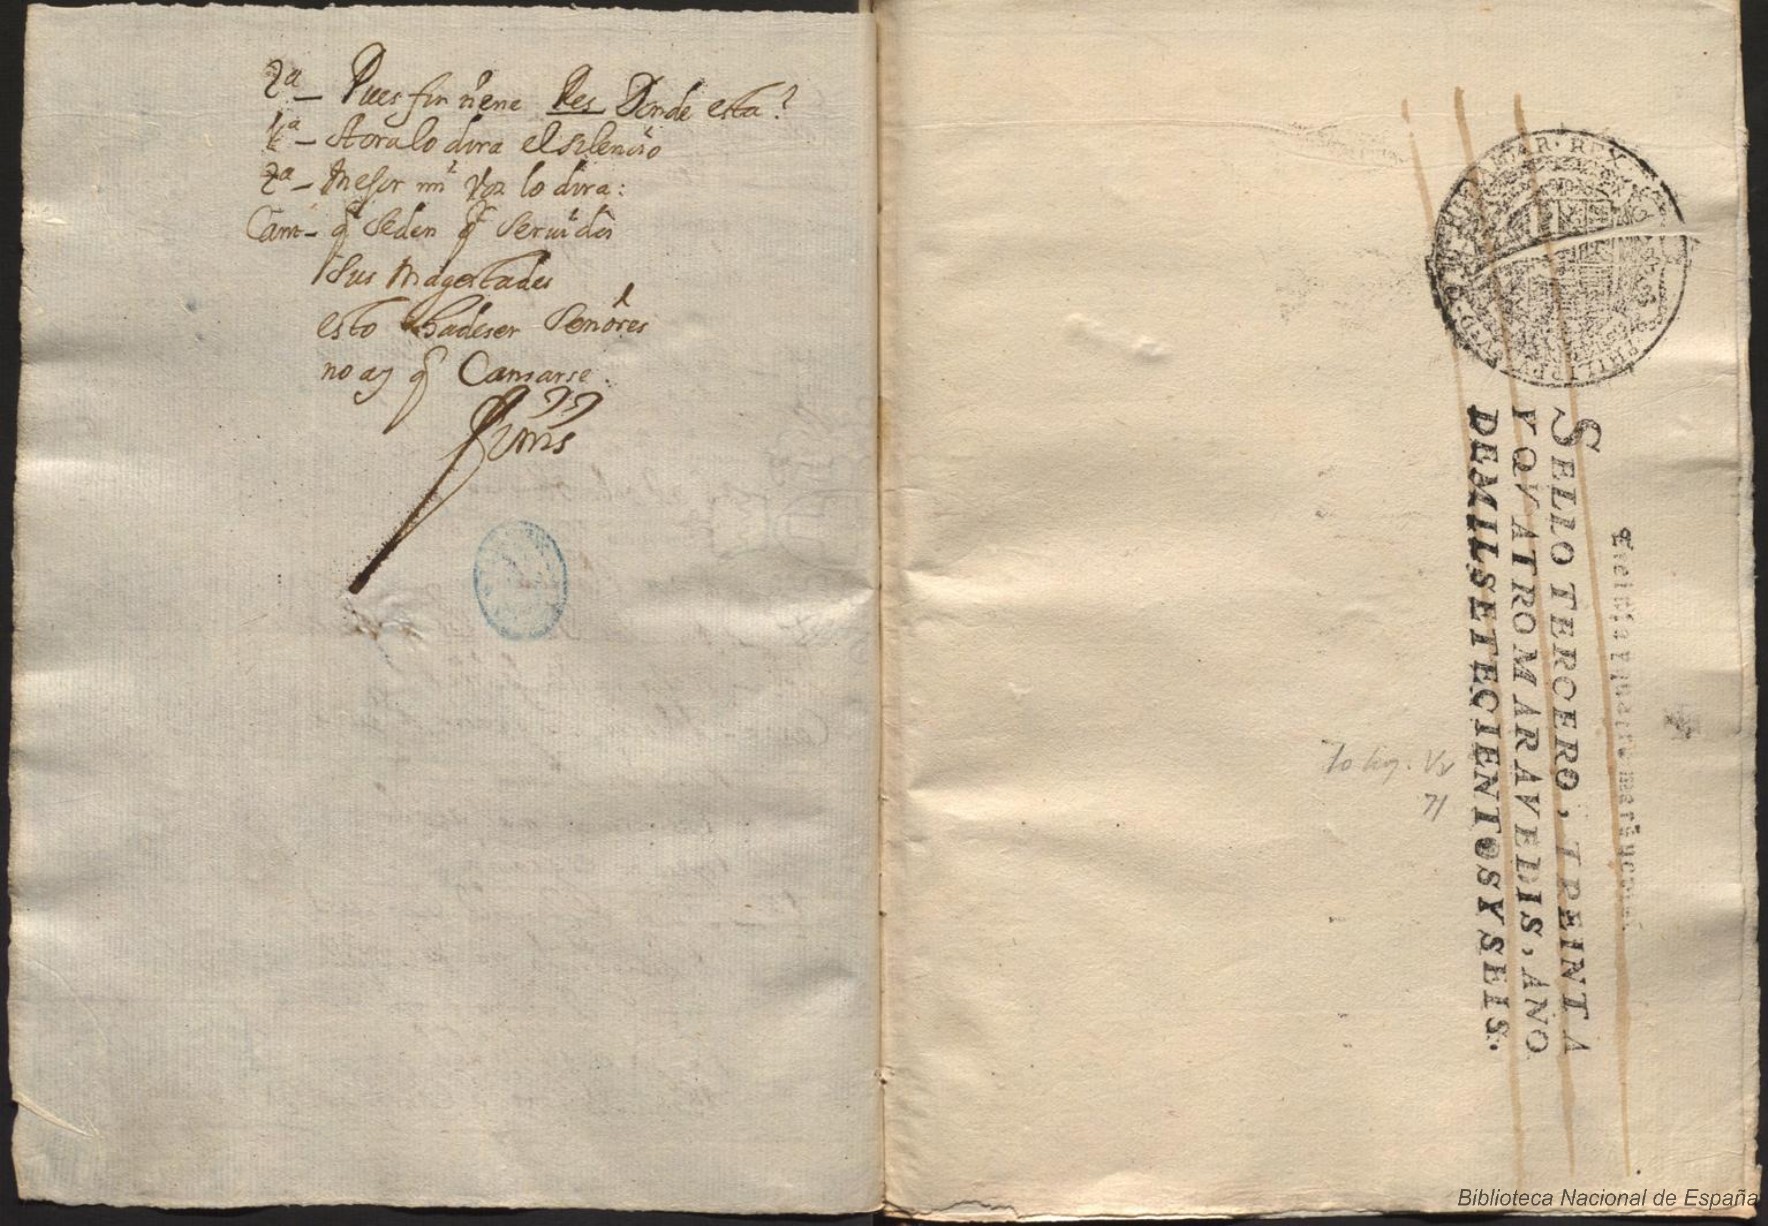 2ª - Pues fin tiene Res Donde esta?
1ª - Aora lo dira el silencio
2ª - Mejor mi voz lo dira:
Cam - q̃ seden q̃ servidos
Sus Magestades
esto ha deser Señores
no ay q̃ Cansarse.
Finis
PHILIPPVS · V · D · G · HISPANIAR · REX
SELLO TERCERO, TREINTA
Y QVATRO MARAVEDIS, AÑO
DE MIL SETECIENTOS Y SEIS.
Treinta y quatro maravedis.
71
Biblioteca Nacional de España